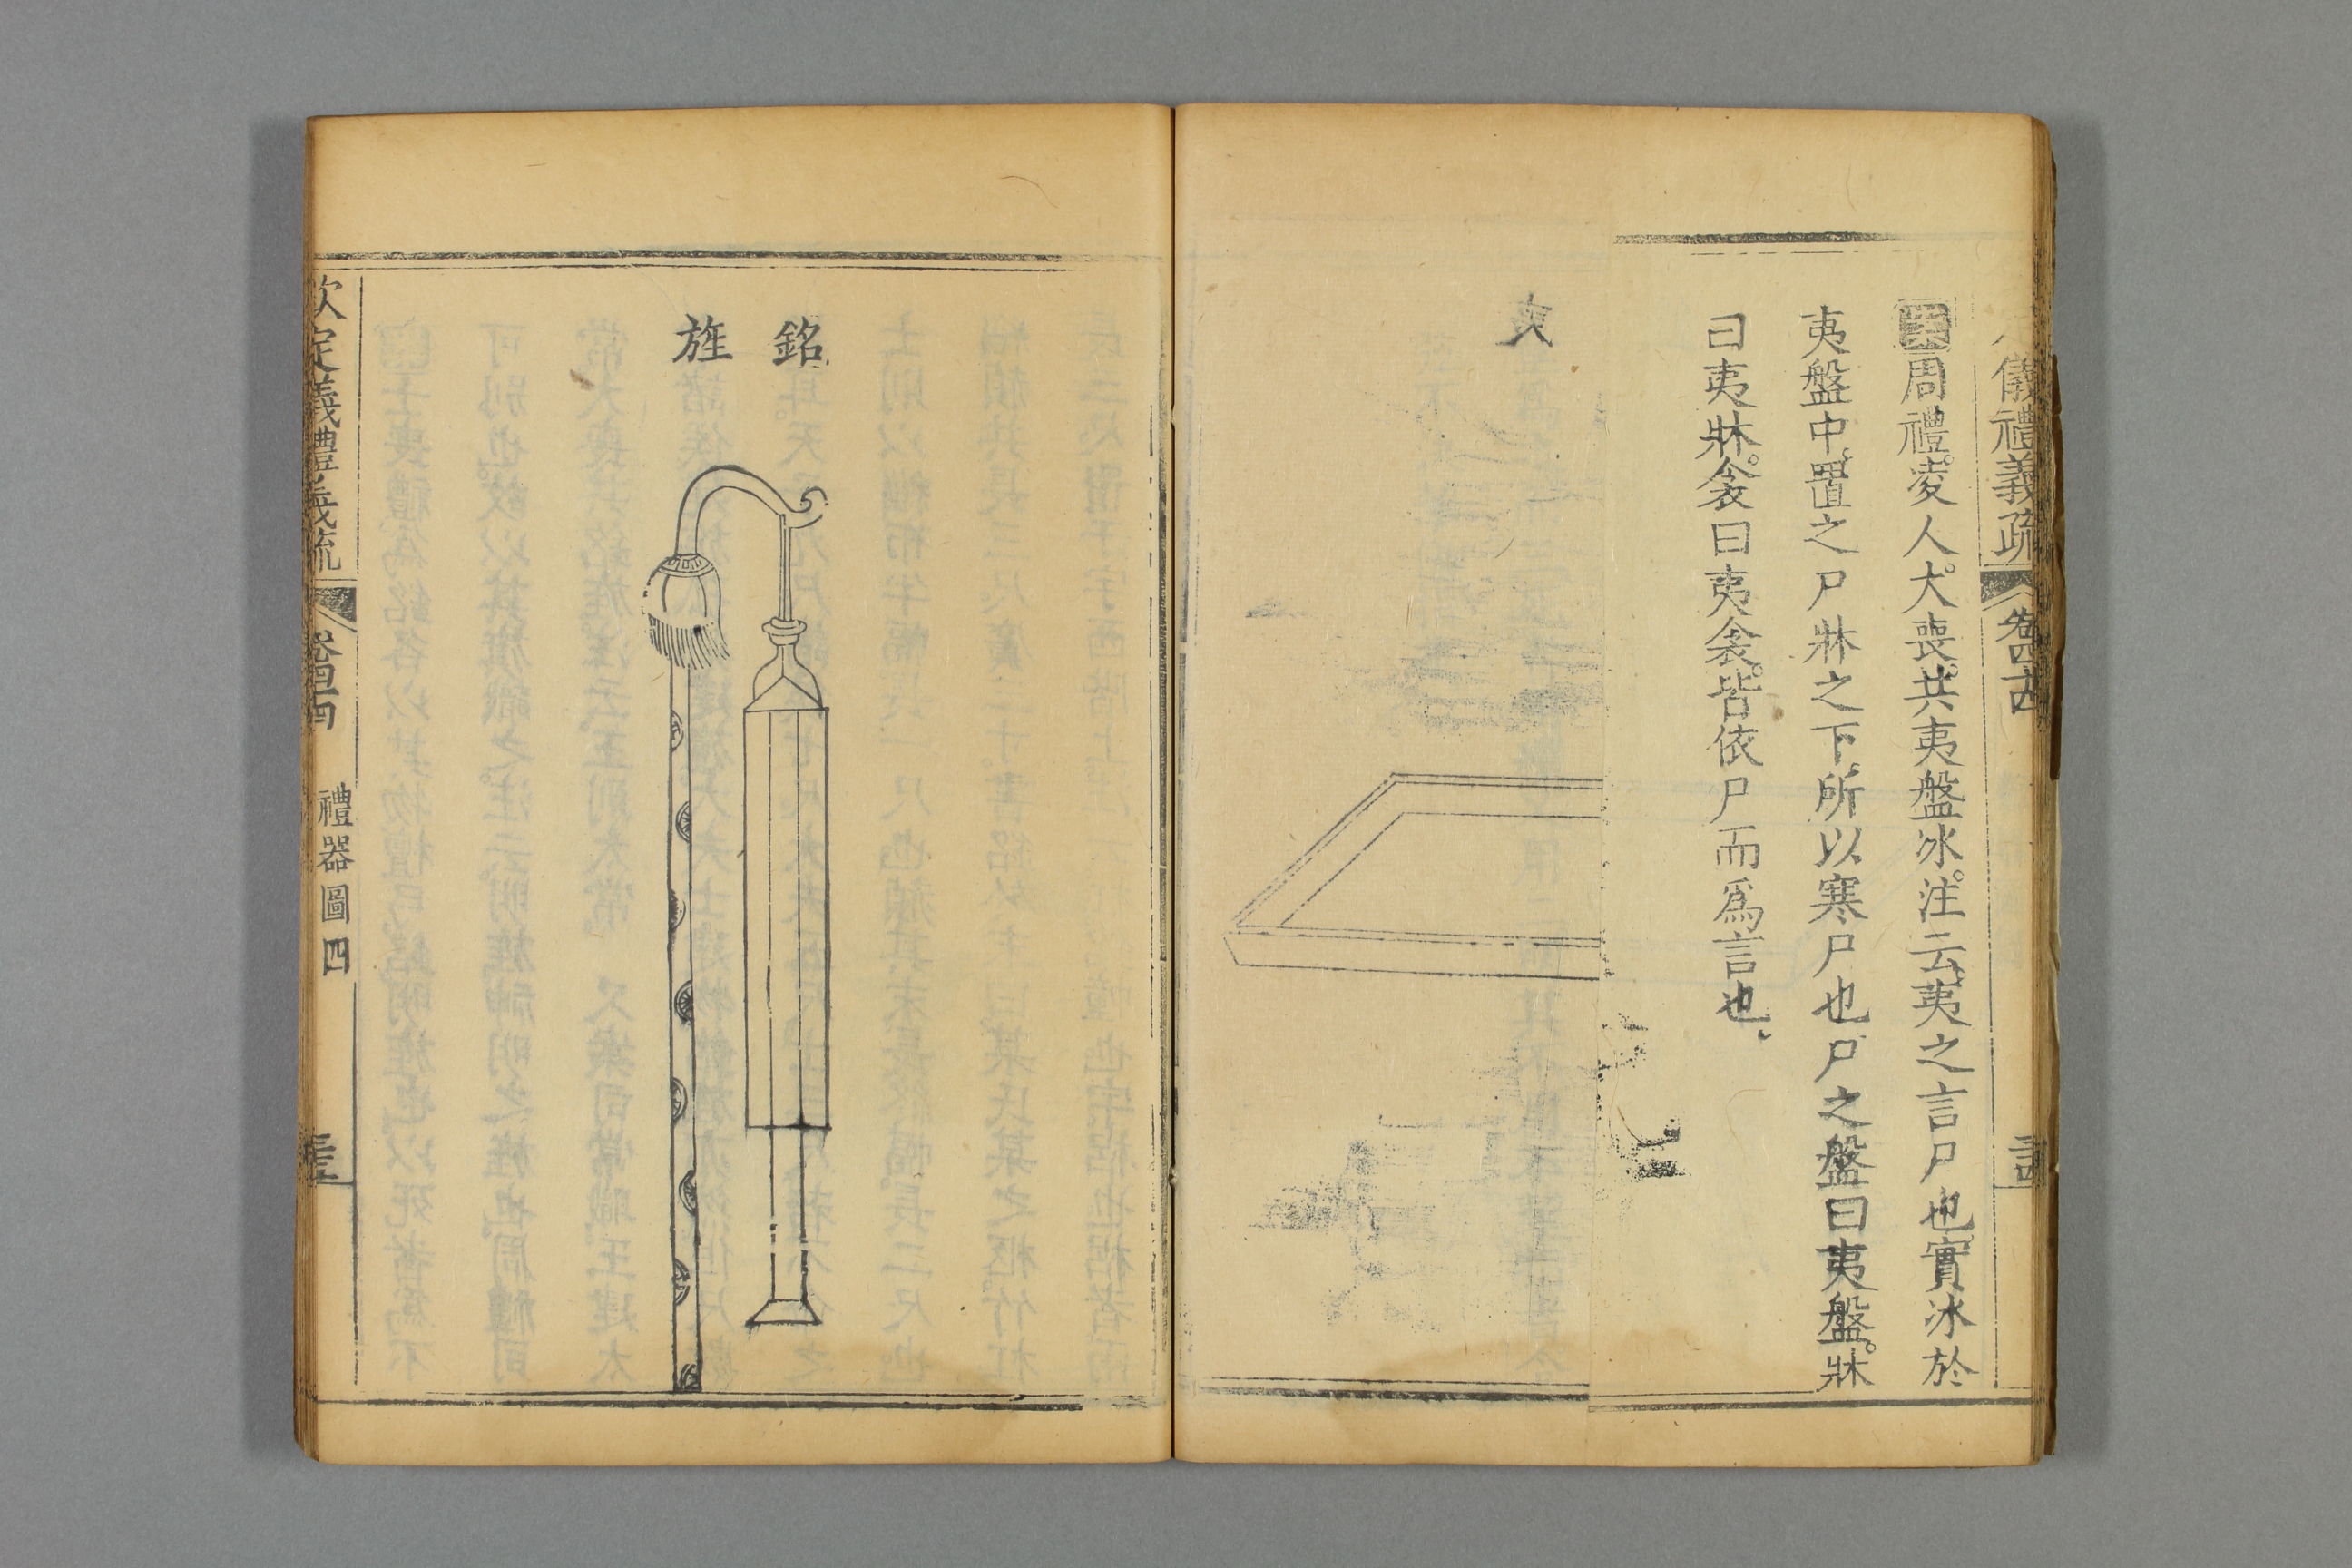 儀禮義疏 卷四十四
周禮凌人大喪共夷盤冰注云夷之言尸也實冰於
夷盤中置之尸牀之下所以寒尸也尸之盤曰夷盤牀
曰夷牀衾曰夷衾皆依尸而爲言也
夷
銘
旌
欽定義禮義疏 卷四十四 禮器圖四